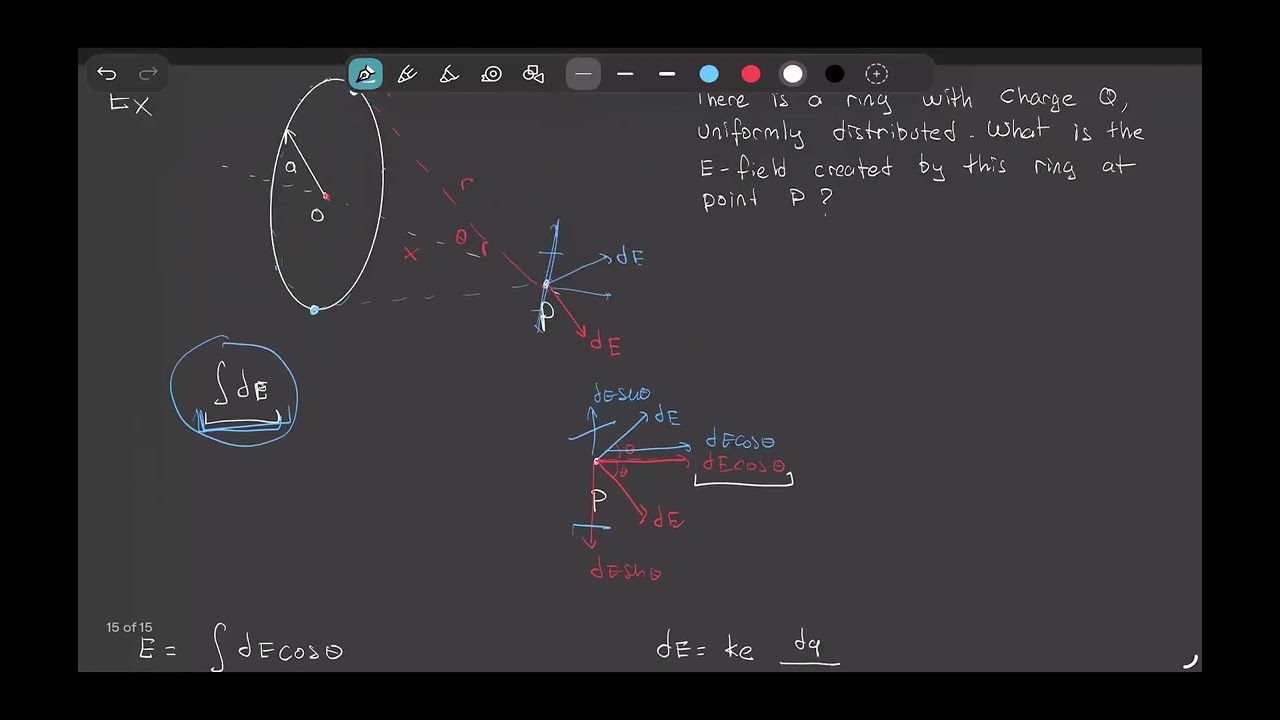 Ex
There is a ring with Charge Q,
uniformly distributed. What is the
E-field created by this ring at
point P?
a
O
r
θ
x
dE
P
dE
∫dE
dEsinθ
dE
dEcosθ
θ
dEcosθ
θ
P
dE
dEsinθ
15 of 15
E = ∫dEcosθ
dE = ke dq